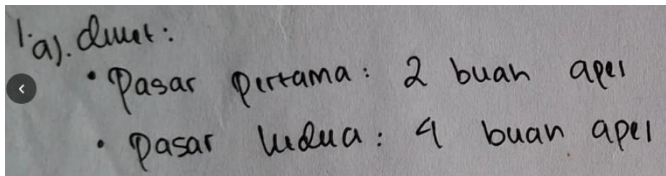 1. a). diket :
• Pasar pertama : 2 buah apel
• Pasar kedua : 4 buah apel